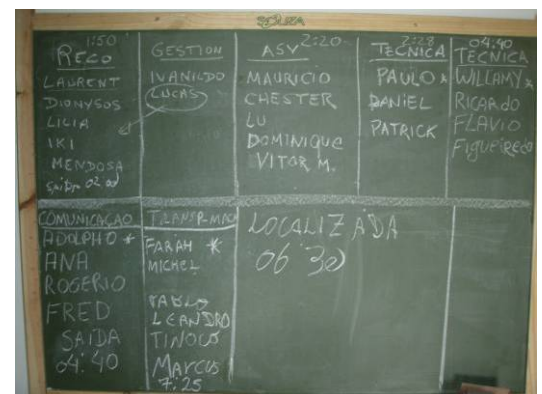 SOUZA
1:50
RECO
LAURENT
DIONYSOS
LILIA
IKI
MENDOSA
Saida 02:00
GESTION
IVANILDO
LUCAS
2:20
ASV
MAURICIO
CHESTER
LU
DOMINIQUE
VITOR M.
2:28
TECNICA
PAULO *
DANIEL
PATRICK
04:40
TECNICA
WILLAMY *
RICARDO
FLAVIO
FIGUEIREDO
COMUNICAÇAO
ADOLPHO *
ANA
ROGERIO
FRED
SAIDA
04:40
TRANSP-MACA
FARAH *
MICHEL
PABLO
LEANDRO
TINOCO
MARCUS
7:25
LOCALIZADA
06:30